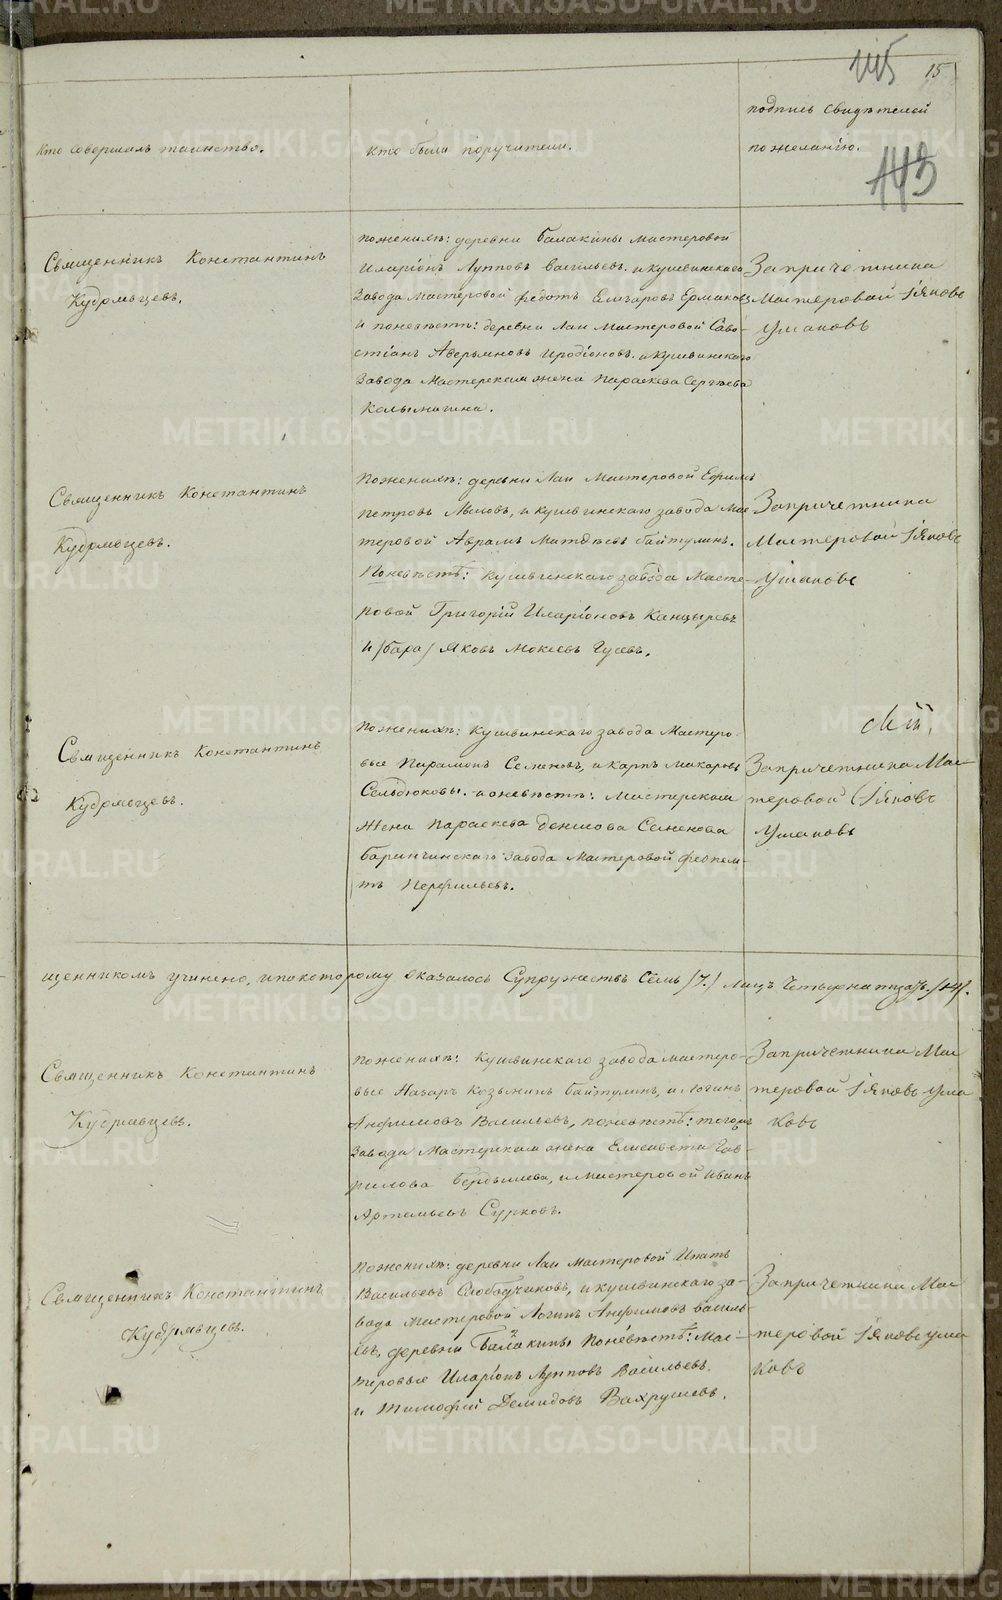 115 15
143
Кто совершалъ таинство.
Кто были поручители.
подпись свидѣтелей
по желанію.
Священникъ Константинъ
Кудрявцевъ.
Пожениxѣ: деревни Балакины мастеровой
Иларіонъ Лупповъ Васильевъ. и кушвинскаго
завода мастеровой Федотъ Елизаровъ Ермаковъ
и поневѣстѣ: деревни Лаи Мастеровой Саво-
стіанъ Аверьяновъ Иродіоновъ. и Кушвинскаго
завода Мастерскаго жена Параскева Сергѣева
Калымагина.
За причетника
Мастеровой Іяковъ
Ушаковъ
Священникъ Константинъ
Кудрявцевъ.
Пожениxѣ: деревни Лаи Мастеровой Ефимъ
Петровъ, и кушвинскаго завода Мас
теровой Аврамъ Матвѣевъ Байтулинъ.
Поневѣстѣ: кушвинскаго завода Масте-
ровой Григорій Иларіоновъ Канцыревъ
и Яковъ Мокеевъ Гусевъ.
За причетника
Мастеровой Іяковъ
Ушаковъ
Священникъ Константинъ
Кудрявцевъ.
Пожениxѣ: Кушвинскаго завода Мастеро-
вые Парамонъ Семеновъ, и Карпъ Макаровъ
Сельдюковы. поневѣстѣ: Мастерская
жена Параскева Денисова Семенова
Баранчинскаго завода Мастеровой
Перфильевъ.
За причетника Мас
теровой Іяковъ
Ушаковъ
щенникомъ учинено, и по которому оказалось Супружествъ Семь /7./ лицъ Четырнатцать /14/.
Священникъ Константинъ
Кудрявцевъ.
Пожениxѣ: Кушвинскаго завода мастеро-
вые Назаръ Козьминъ Байтулинъ, и Логинъ
Анфимовъ Васильевъ, поневѣстѣ: тогожъ
завода Мастерская жена Елисавета Гав-
рилова Бердышева, и Мастеровой Иванъ
Артемьевъ Сурковъ.
За причетника Мас
теровой Іяковъ Уша
ковъ
Священникъ Константинъ
Кудрявцевъ.
Пожениxѣ: деревни Лаи мастеровой Ипатъ
Васильевъ Слободчиковъ, и кушвинскаго за-
вода мастеровой Логинъ Анфимовъ Василь-
евъ, деревни Балакины Поневѣстѣ: Мас-
теровые Иларіонъ Лупповъ Васильевъ.
и Тимофей Демидовъ Вахрушевъ.
За причетника Мас
теровой Іяковъ Уша
ковъ
METRIKI.GASO-URAL.RU